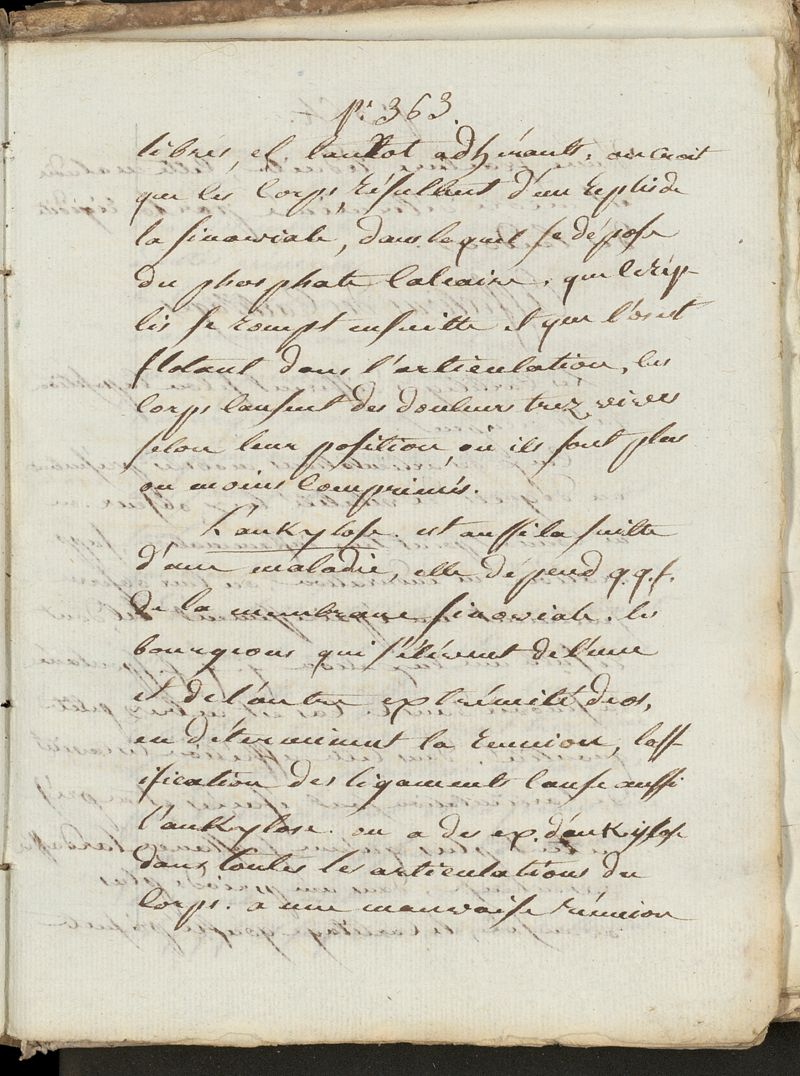 p. 363.
libres, et tantot adhérants. on croit
que les corps résultent d'un replis de
la sinoviale, dans lequel se dépose
du phosphate calcaire. que le rép-
lis se rompt ensuitte et que l'os est
flotant dans l'articulation, les
corps causent des douleurs trez vives
selon leur position, ou ils sont plus
ou moins comprimés.
L'ankylose. est aussi la suitte
d'une maladie, elle dépend q.q.f.
de la membrane sinoviale. les
bourgeons qui s'élévent de l'une
et de l'autre extrémité d'os,
en déterminent la reunion, l'oss-
ification des ligaments cause aussi
l'ankylose. on a des ex. d'ankylose
dans toutes les articulations du
corps. a une mauvaise réunion